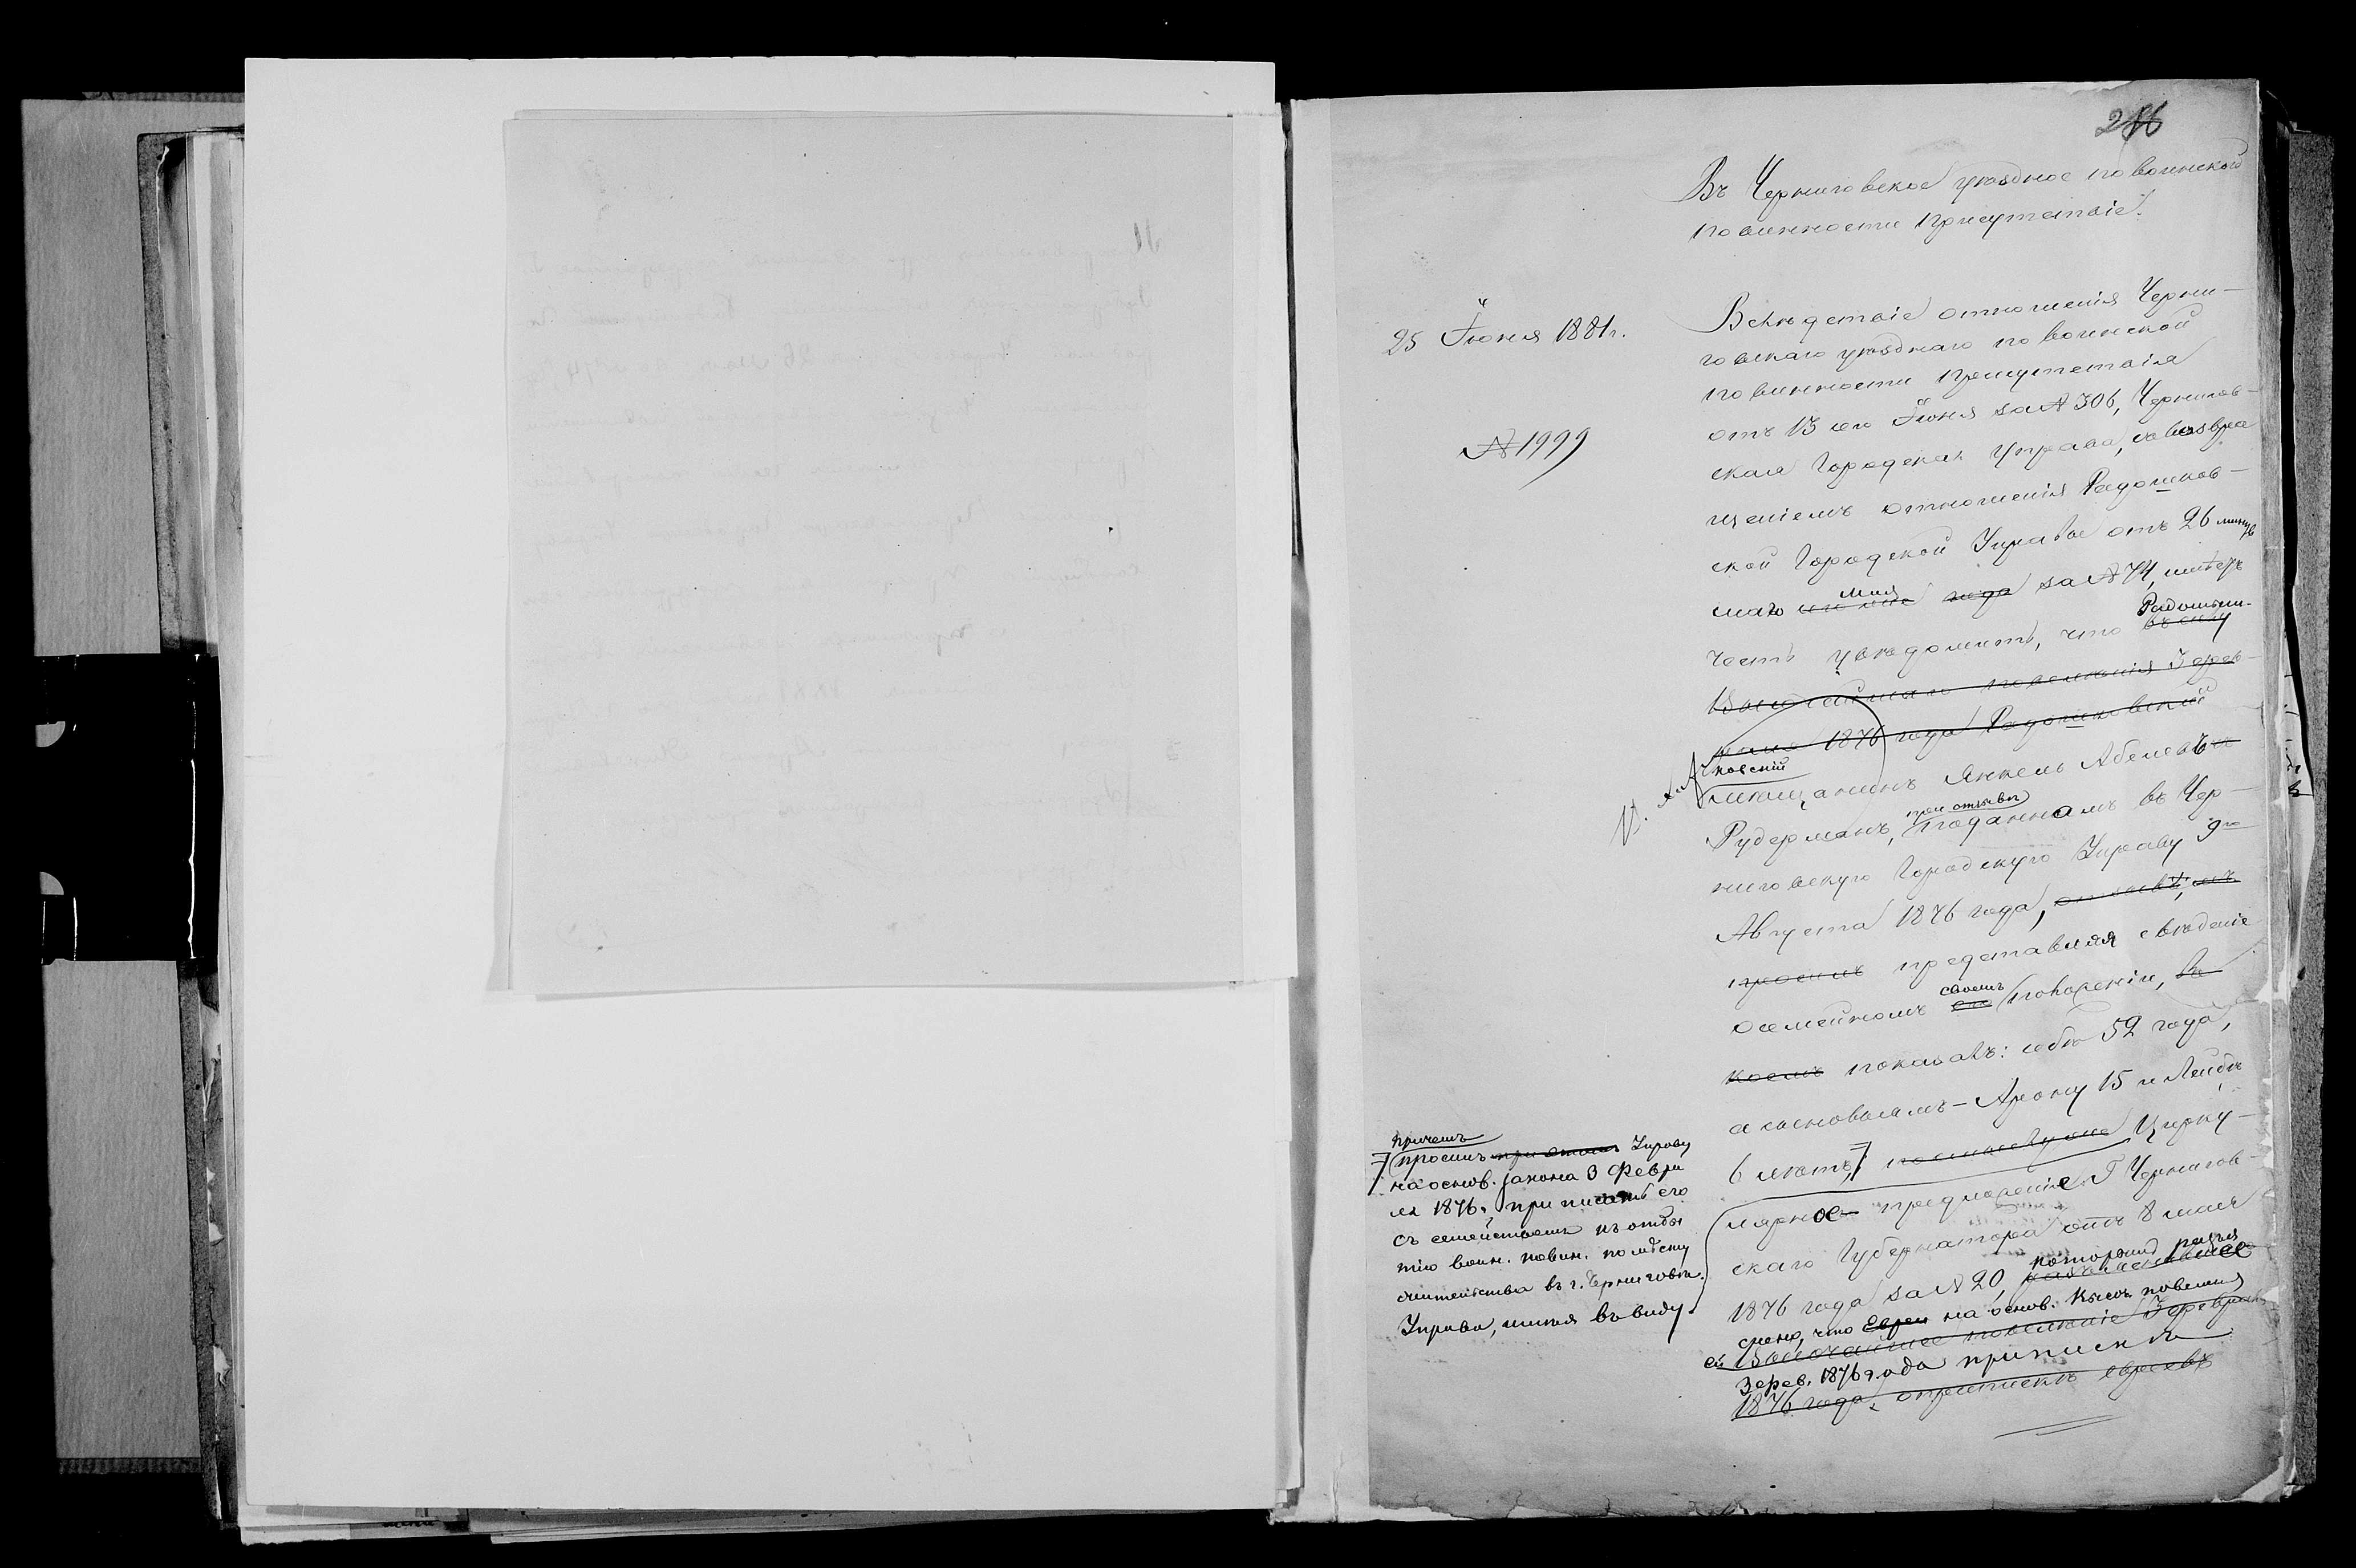 216
Въ Черниговское уѣздное по воинской
повинности Присутствіе.
25 Іюня 1881 г.
№ 1999
Вслѣдствіе отношенія Черни-
говскаго уѣзднаго по воинской
повинности Присутствія
отъ 13 сего Іюня за № 306, Чернигов-
ская Городская Управа, съ возвра
щеніемъ отношенія Радошков-
ской Городской Управы отъ 26
мая года за № 74, имѣетъ
честь увѣдомить, что въ силу Радошк-
Высочайшаго повелѣнія 3 фев-
раля 1876 года Радошковскій
ковскій
мѣщанинъ Янкель Абелевъ
Рудерманъ, при отзывѣ поданномъ въ Чер-
ниговскую Городскую Управу 9го
Августа 1876 года,
просилъ представляя свѣденіе
о семейномъ своемъ положеніи, въ
коемъ показавъ: себѣ 52 года,
а сыновьямъ - Арону 15 и Лейбѣ
6 лѣтъ, Цирку-
лярное предложеніе Г Чернигов-
скаго Губернатора отъ 8 мая
1876 года за № 20, которымъ разъя
снено, что евреи на основ. Высоч. повелѣнія
Высочайшее повелѣніе 3 февраля
3 фев. 1876 года приписка
1876 года, евреевъ
причемъ
просилъ при этомъ Управу
на основ. закона 3 Февра
ля 1876 г. приписать его
съ семействомъ къ отбы
тію воин. повин. по мѣсту
жительства въ г. Черниговѣ.
Управа, имѣя въ виду